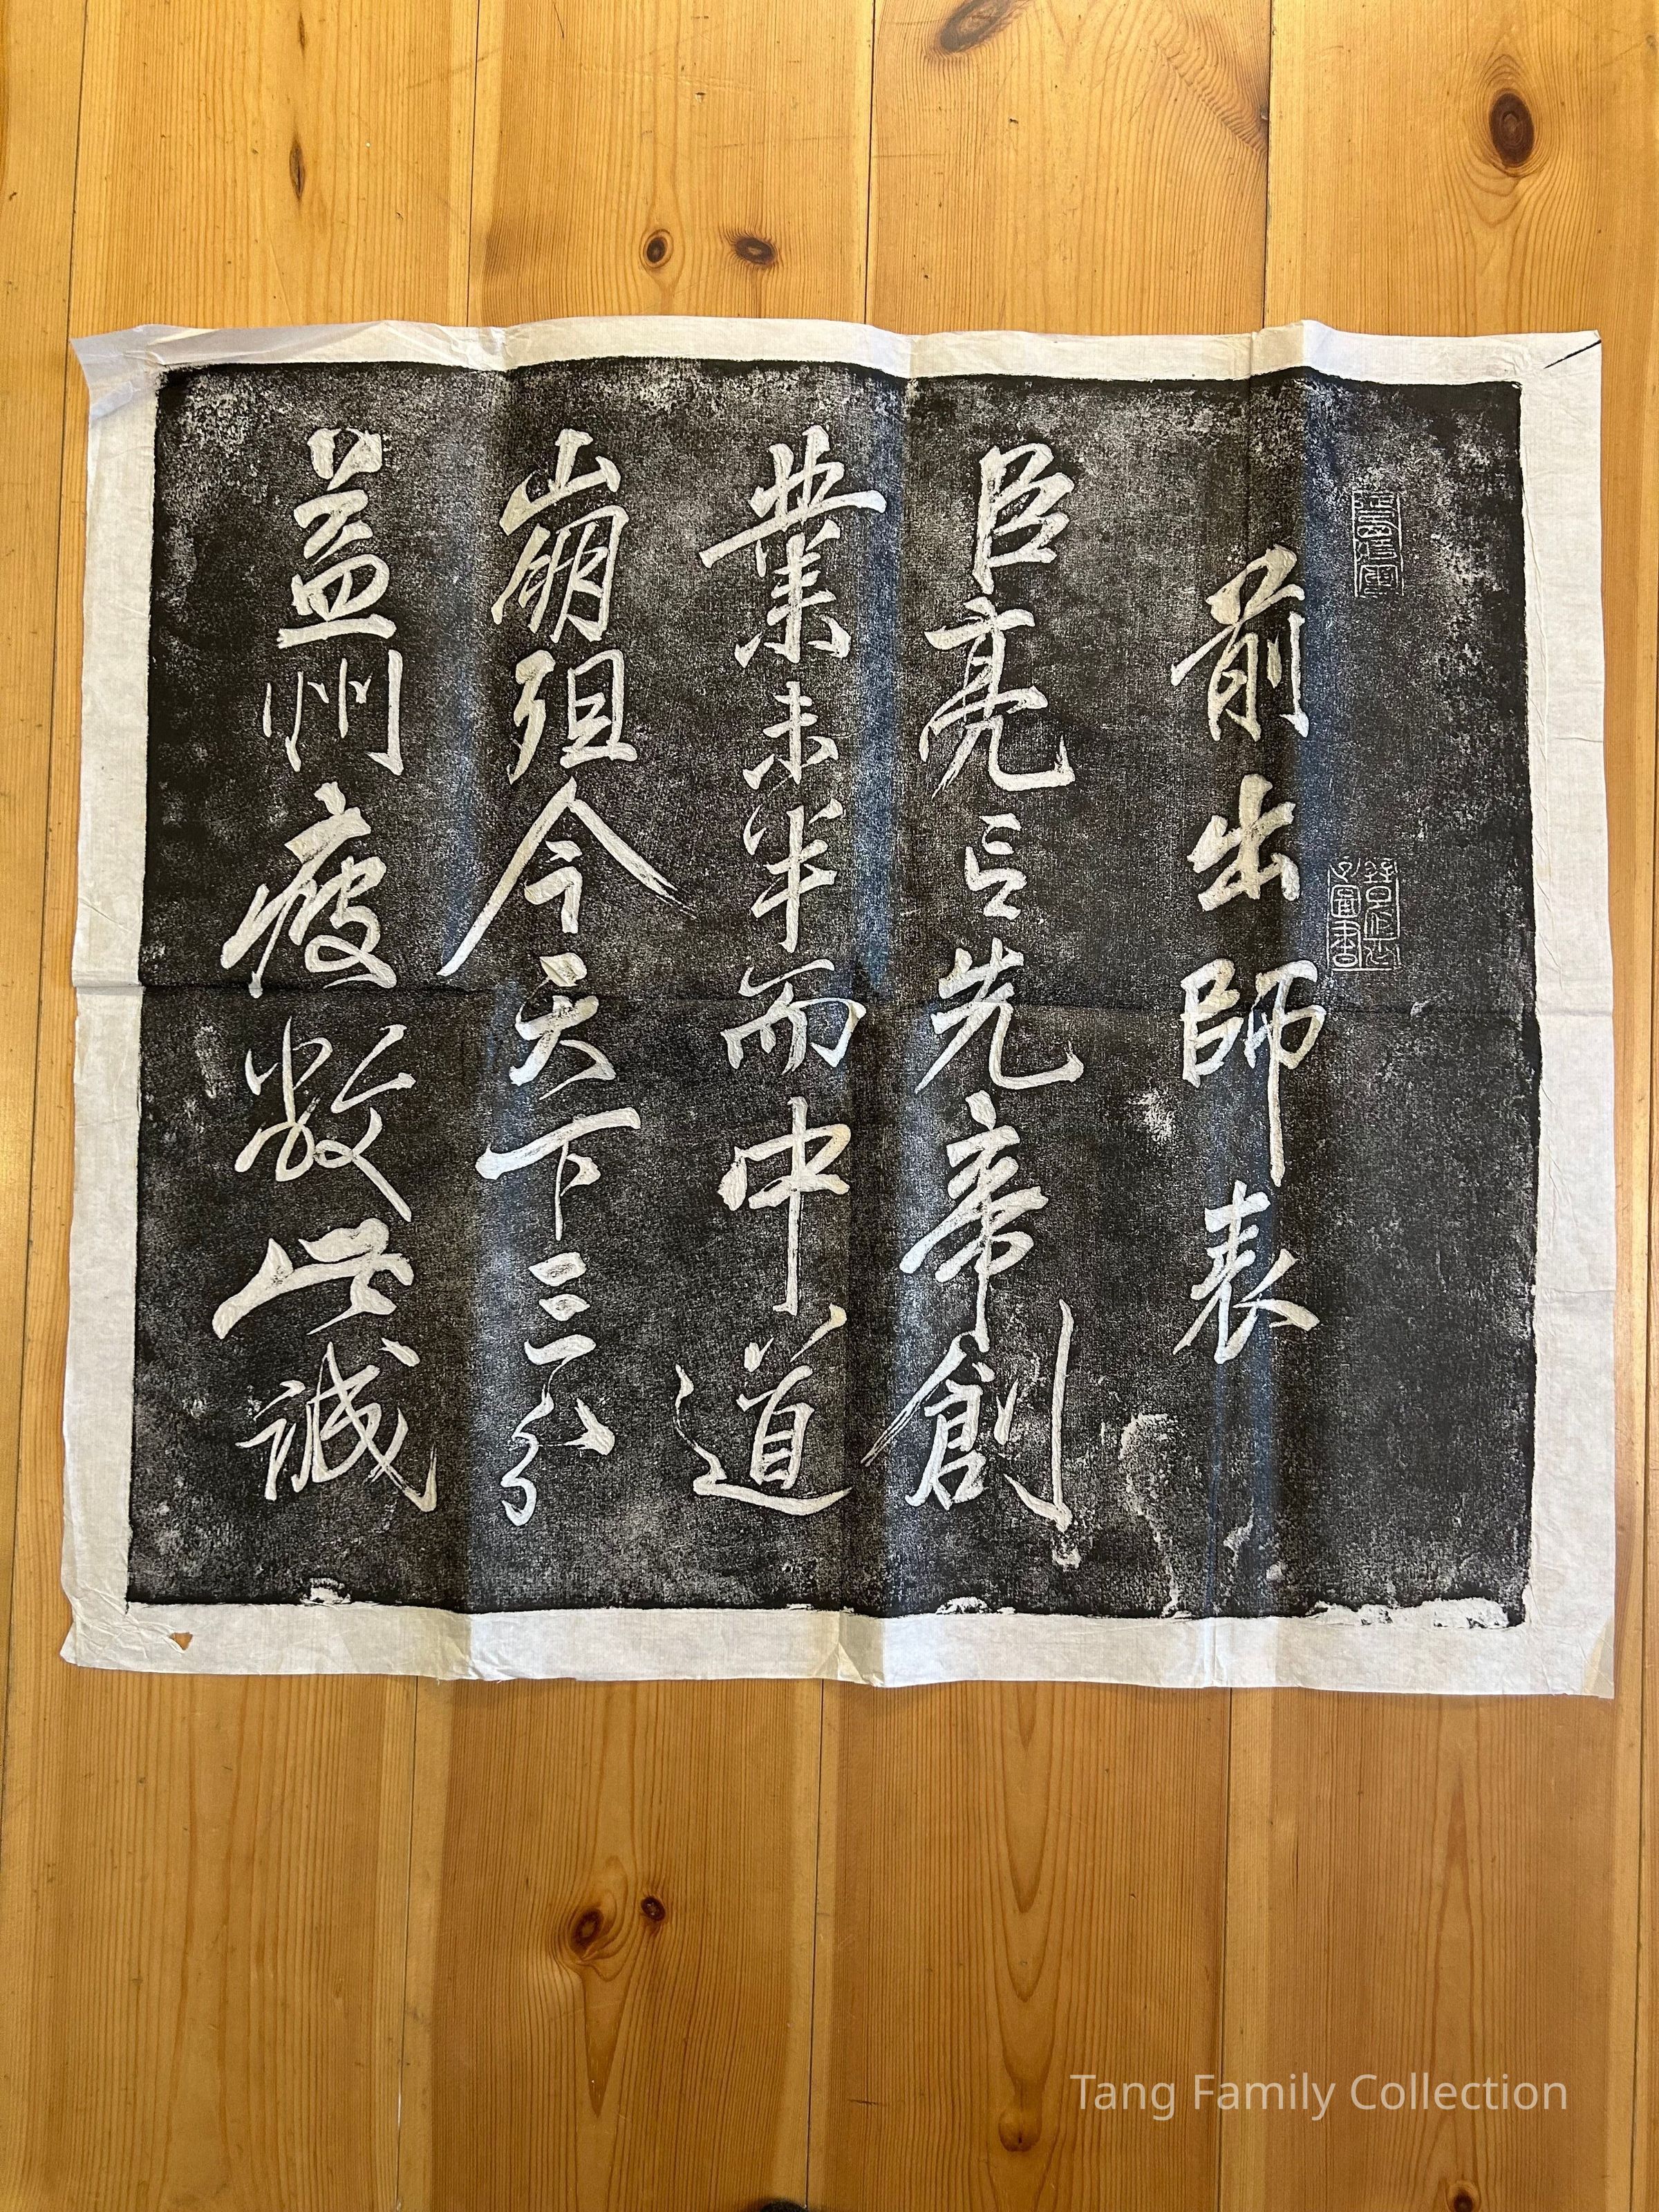 前出師表
臣亮言先帝創
業未半而中道
崩殂今天下三分
益州疲敝此誠
Tang Family Collection